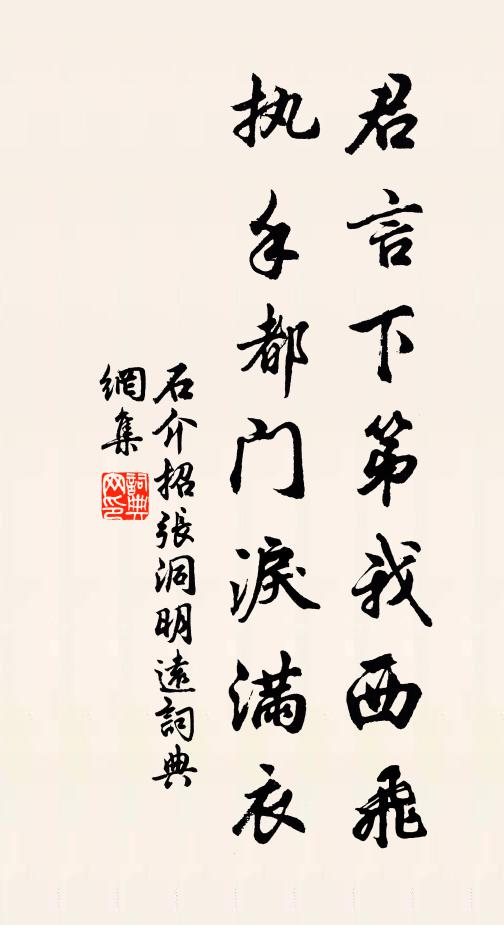 君言下第我西飛
执手都门淚滿衣
石介招張洞明遠詞典
網集
詞典网印